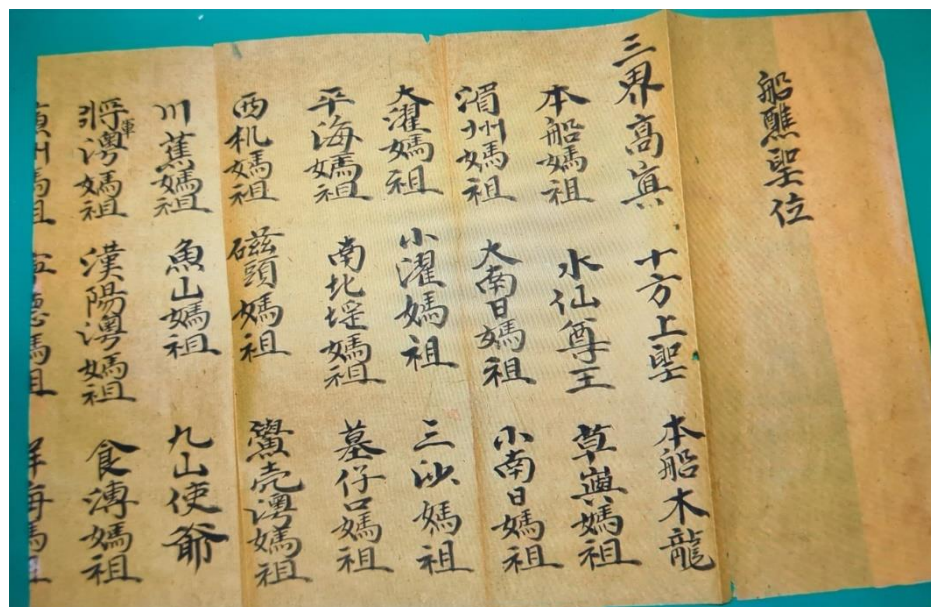 船醮聖位
三界高眞 十方上聖 本船木龍
本船媽祖 水仙尊王 草嶼媽祖
湄州媽祖 大南日媽祖 小南日媽祖
大濯媽祖 小濯媽祖 三沙媽祖
平海媽祖 南北埕媽祖 墓仔口媽祖
西机媽祖 磁頭媽祖 鱟壳澳媽祖
川蕉媽祖 魚山媽祖 九山使爺
將軍澳媽祖 漢陽澳媽祖 食溥媽祖
州媽祖 德媽祖 海媽祖